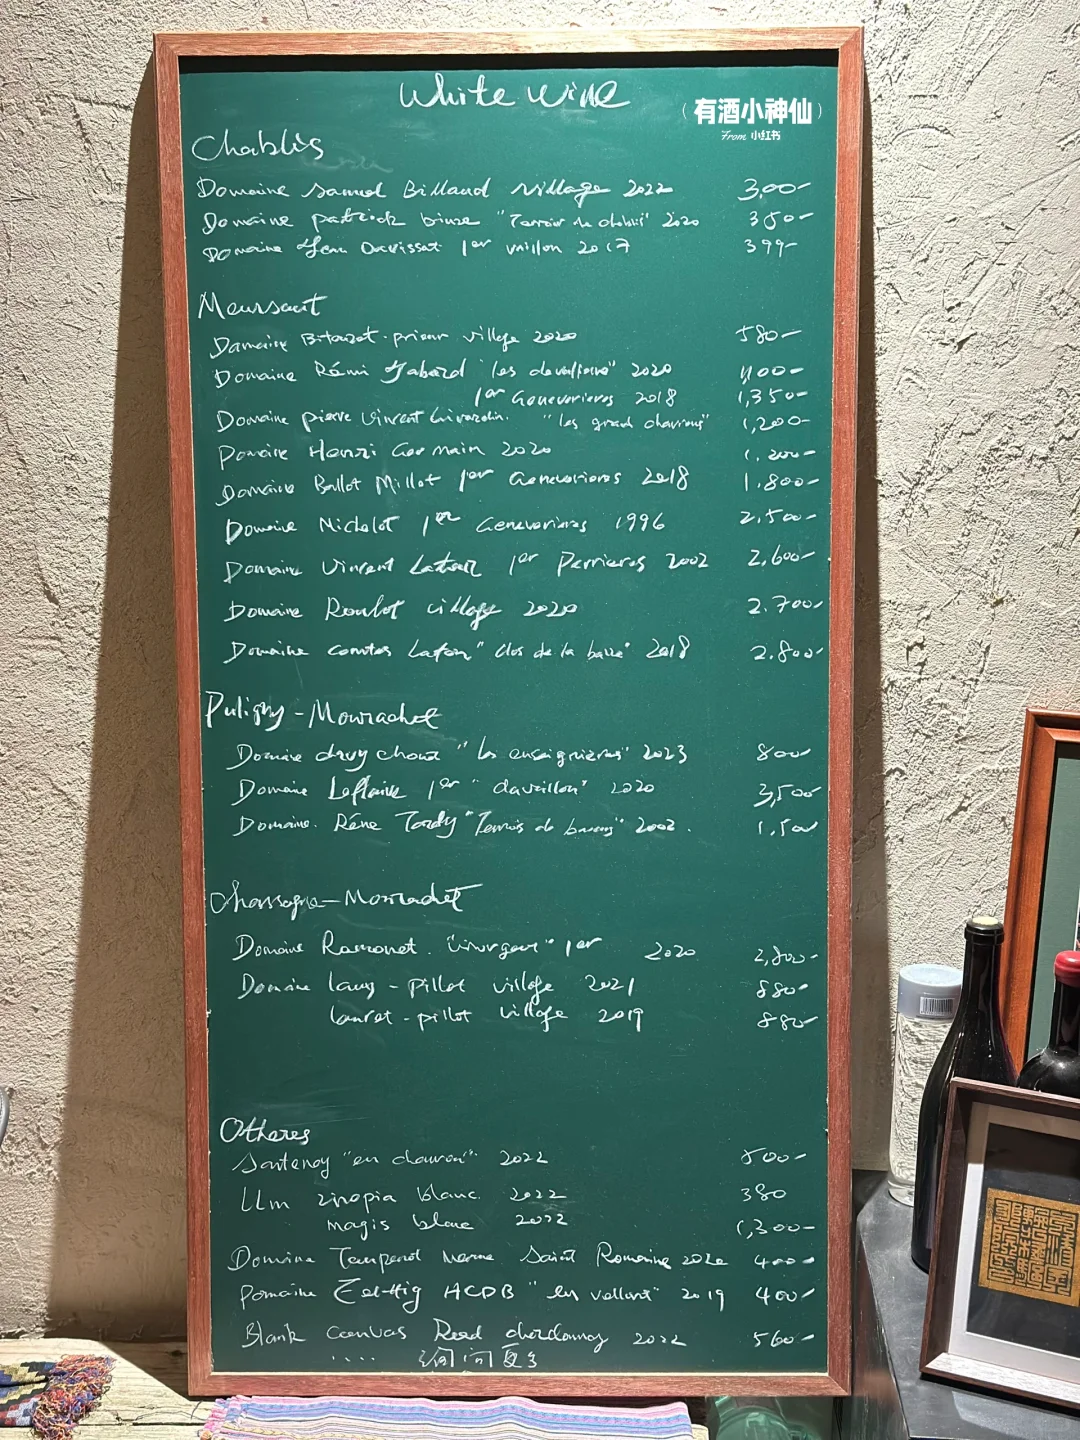 White Wine
(有酒小神仙)
From 小红书
Chablis
Domaine Samuel Billaud village 2022 3,00-
Domaine patrick binze "Terroir de chablis" 2020 350-
Domaine Davissat 1er vaillon 2017 399-
Meursault
Domaine Bitouzet-prieur village 2020 580-
Domaine Rémi Jobard "les 2020 1,100-
1er Genevrieres 2018 1,350-
Domaine pierre Vincent Girardin. "les grand charrons" 1,200-
Domaine Henri Germain 2020 1,200-
Domaine Ballot Millot 1er Genevrieres 2018 1.800-
Domaine Michelot 1er Genevrieres 1996 2.500-
Domaine Vincent Latour 1er Perrieres 2002 2.600-
Domaine Roulot village 2020 2.700-
Domaine comtes Lafon "clos de la barre" 2018 2.800-
Puligny-Montrachet
Domaine "les enseignieres" 2023 800-
Domaine Leflaive 1er "clavaillon" 2020 3,500-
Domaine. Réne Tardy 2002. 1.500-
Chassagne-Montrachet
Domaine Ramonet. 1er 2020 2,800-
Domaine lamy-pillot village 2021 880-
lauret-pillot village 2019 880-
Otheres
Santenay 2022 500-
Llm zinopia blanc. 2022 380
magis blanc 2022 1,300-
Domaine Saint Romaine 2020 400-
Domaine HCDB "en vallons" 2019 400-
Blank canvas Reed chardonnay 2022 560-
.... 询问更多